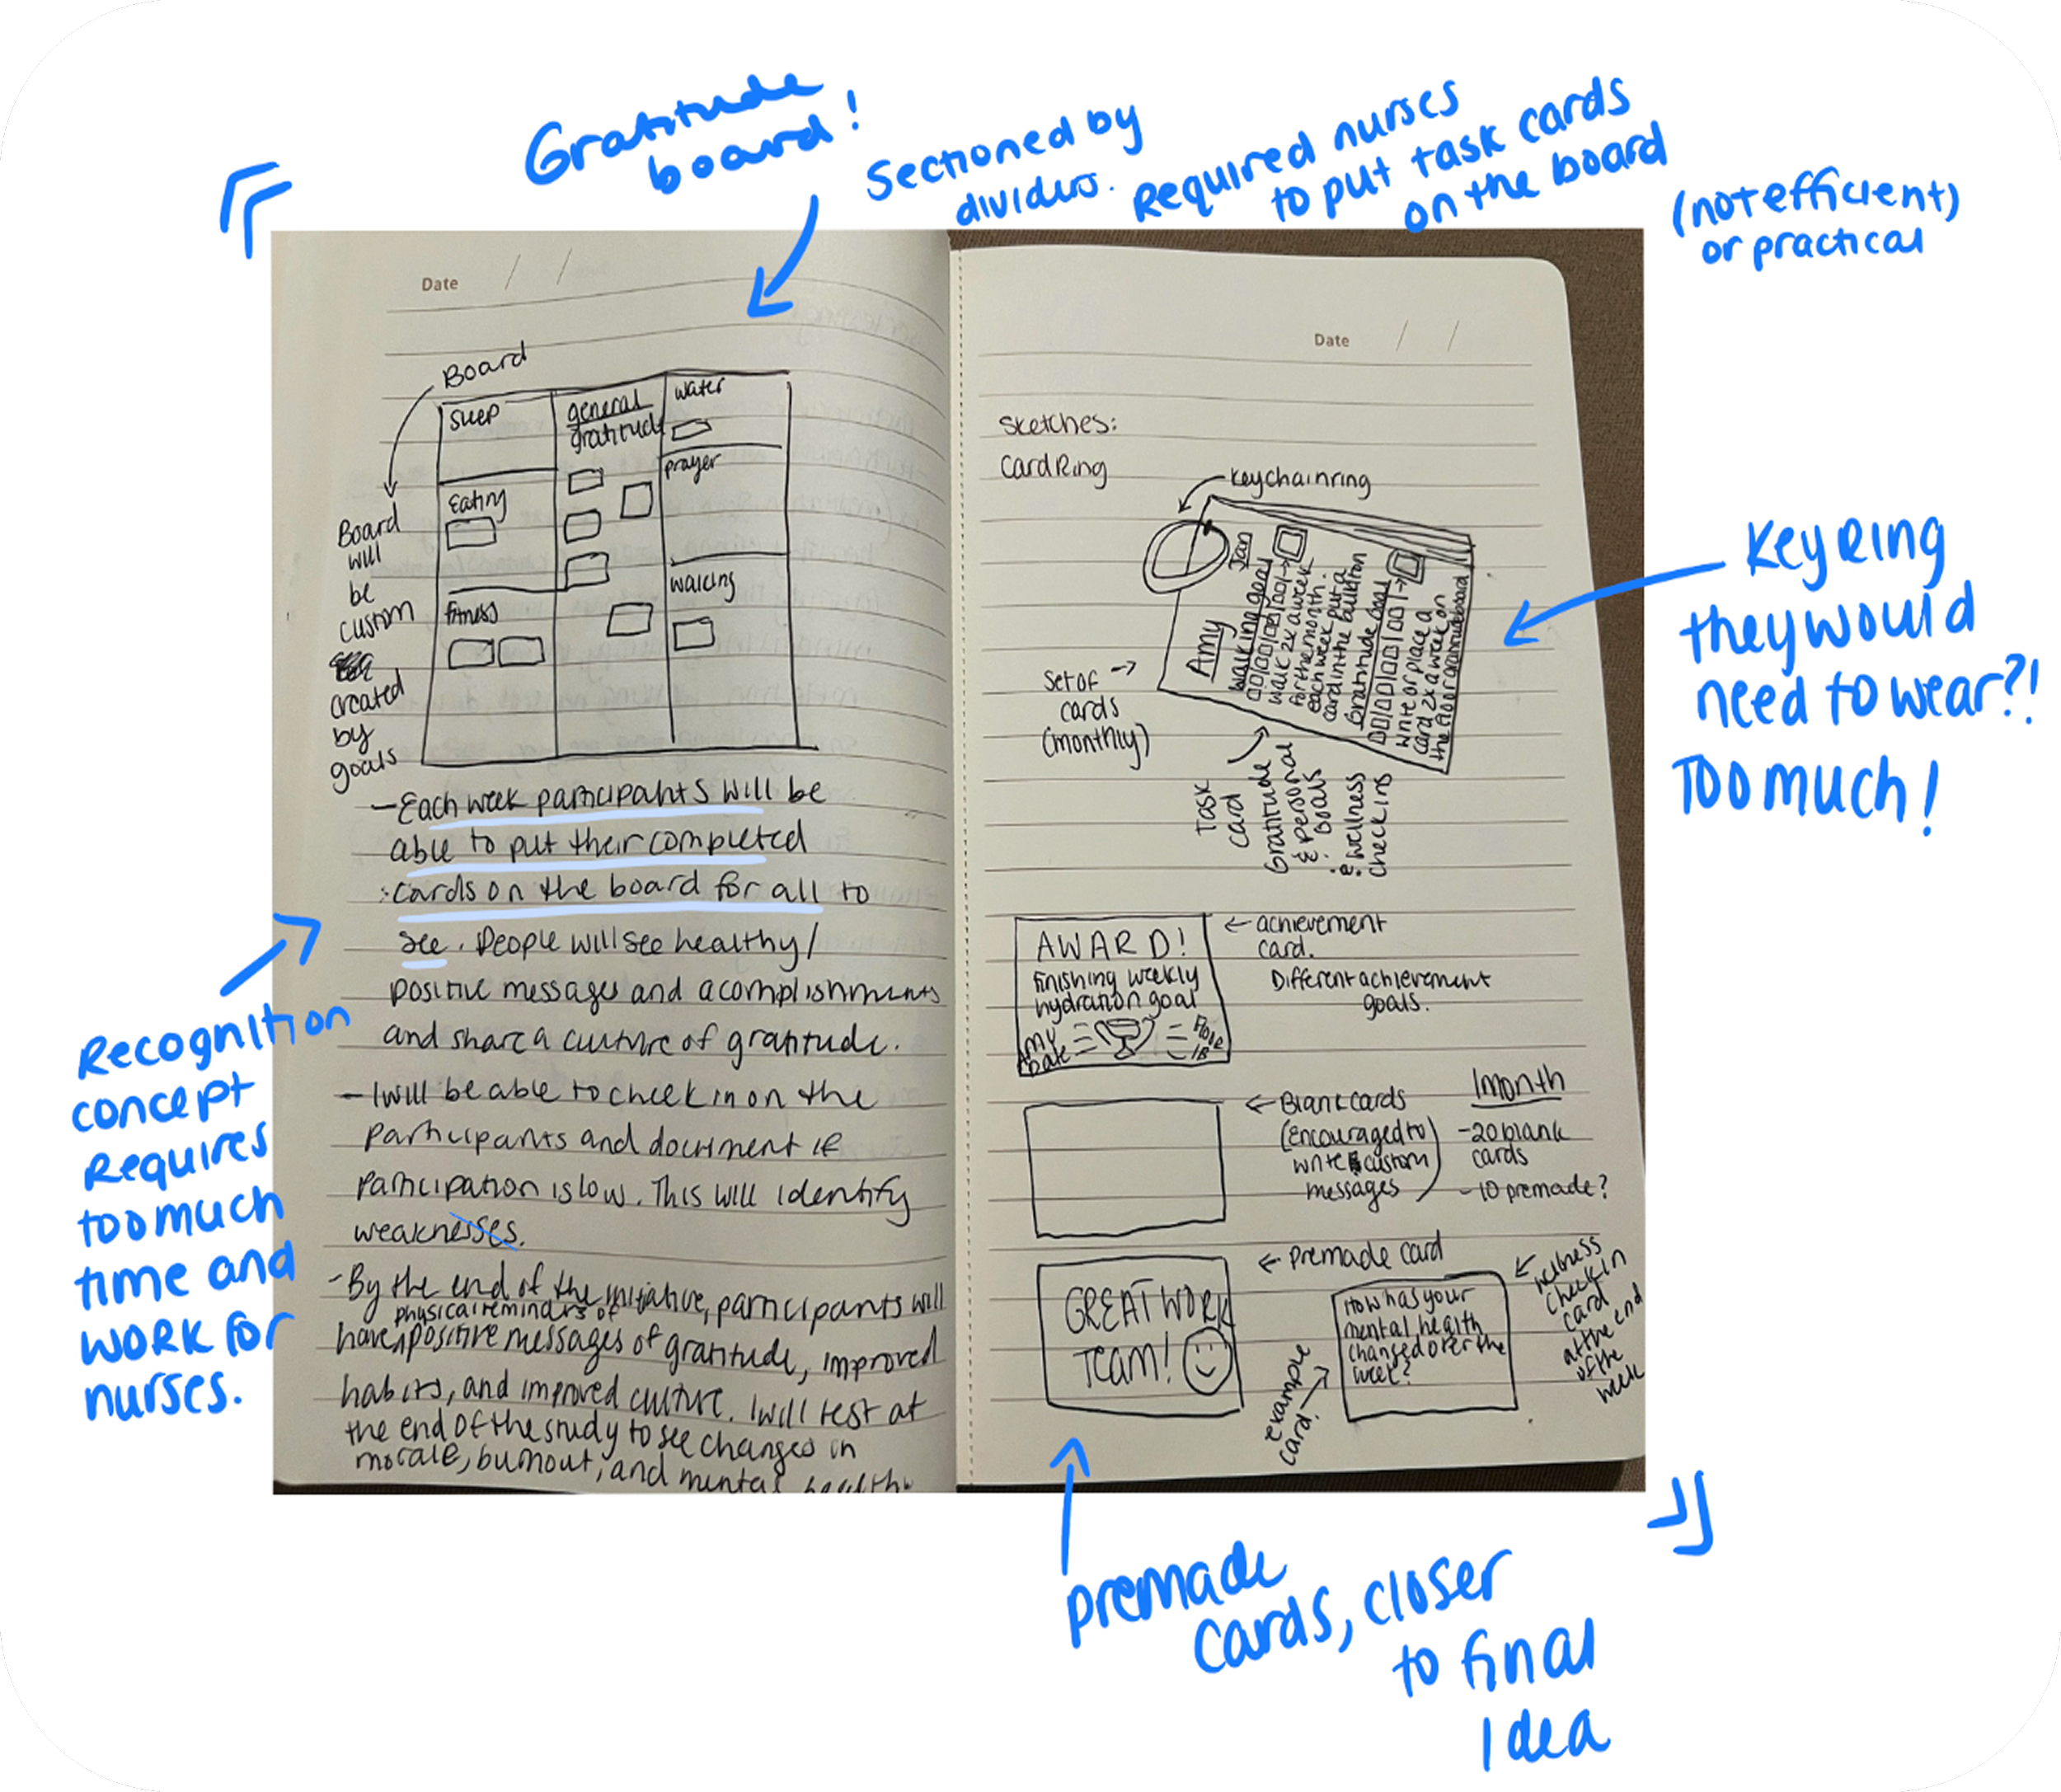 Gratitude
board!
Sectioned by
dividers.
Required nurses
to put task cards
on the board
(not efficient)
or practical
Date / /
Board
Board
will
be
custom
created
by
goals
Sleep
general
gratitude
water
Eating
prayer
fitness
walking
- Each week participants will be
able to put their completed
cards on the board for all to
see. People will see healthy/
positive messages and acomplishments
and share a culture of gratitude.
- I will be able to check in on the
participants and document if
participation is low. This will identify
weaknesses.
- By the end of the initiative, participants will
physical reminders of
have positive messages of gratitude, improved
habits, and improved culture. I will test at
the end of the study to see changes in
morale, burnout, and mental health
Recognition
concept
requires
too much
time and
work for
nurses.
Date / /
Sketches:
Card Ring
Keychain ring
Set of →
cards
(monthly)
Amy
Jan
walking goal
walk 2x a week
for the month.
each week put a
card in the bulliton
Gratitude goal
write or place a
card 2x a week on
the floor gratitude board
Task
card
Gratitude
& personal
goals
& wellness
check ins
Key Ring
they would
need to wear?!
Too much!
AWARD!
finishing weekly
hydration goal
Amy
Date
Floor
← achievement
card.
Different achievement
goals.
← Blank cards
(Encouraged to)
write custom
messages
1 month
- 20 blank
cards
- 10 premade?
← Premade card
GREAT WORK
TEAM!
example
card →
How has your
mental health
changed over the
week?
← wellness
check in
card
at the end
of the
week
premade
cards, closer
to final
Idea